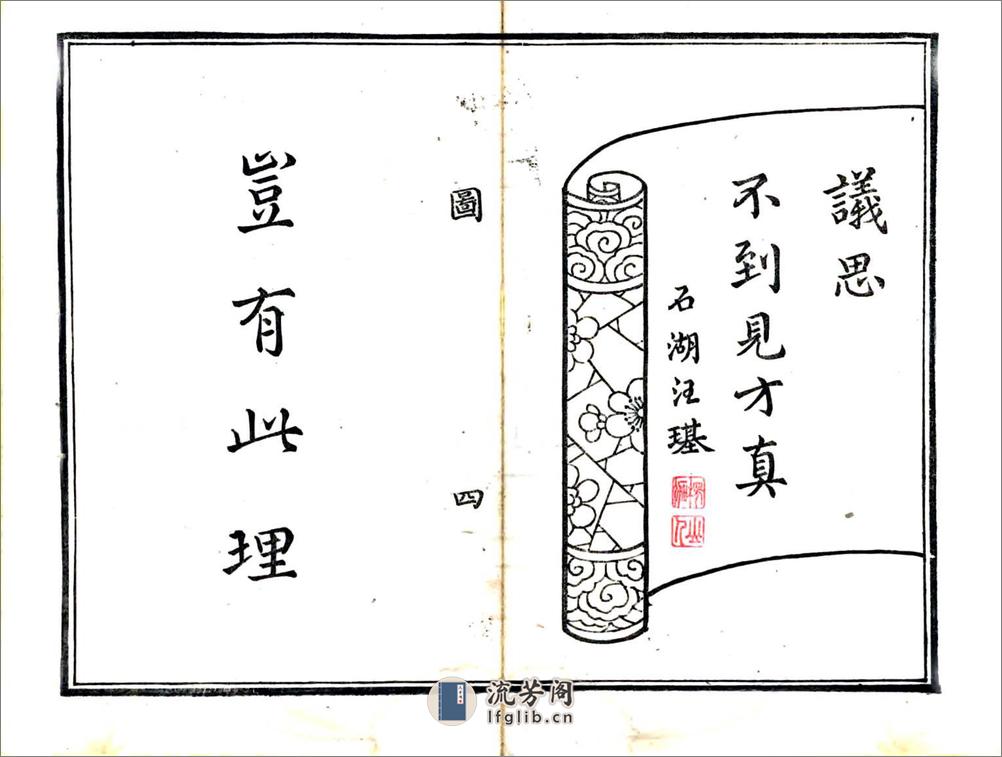 議思
不到見才真
石湖汪璂
圖
四
豈有此理
流芳阁
lfglib.cn